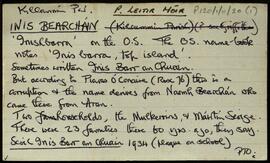 Killannin Ph. P. LEITIR MÓIR P120/1/0/20 (1)
INIS BEARCHÁIN (Killannin Parish)
'Inisbarra' on the O.S. The OS. name-book
notes 'Inis barra, top island'.
Sometimes written Inis Barr an Chuain.
But according to Piaras Ó Conaire (Rec. 76) this is a
corruption & the name derives from Naomh Bearchán who
came there from Aran.
Two families, the Mulkerrins & Máirtín
There were 23 families there 60 yrs. ago, they say.
Scoil Inis Barr an Chuain 1934 (plaque on school)
PTO.